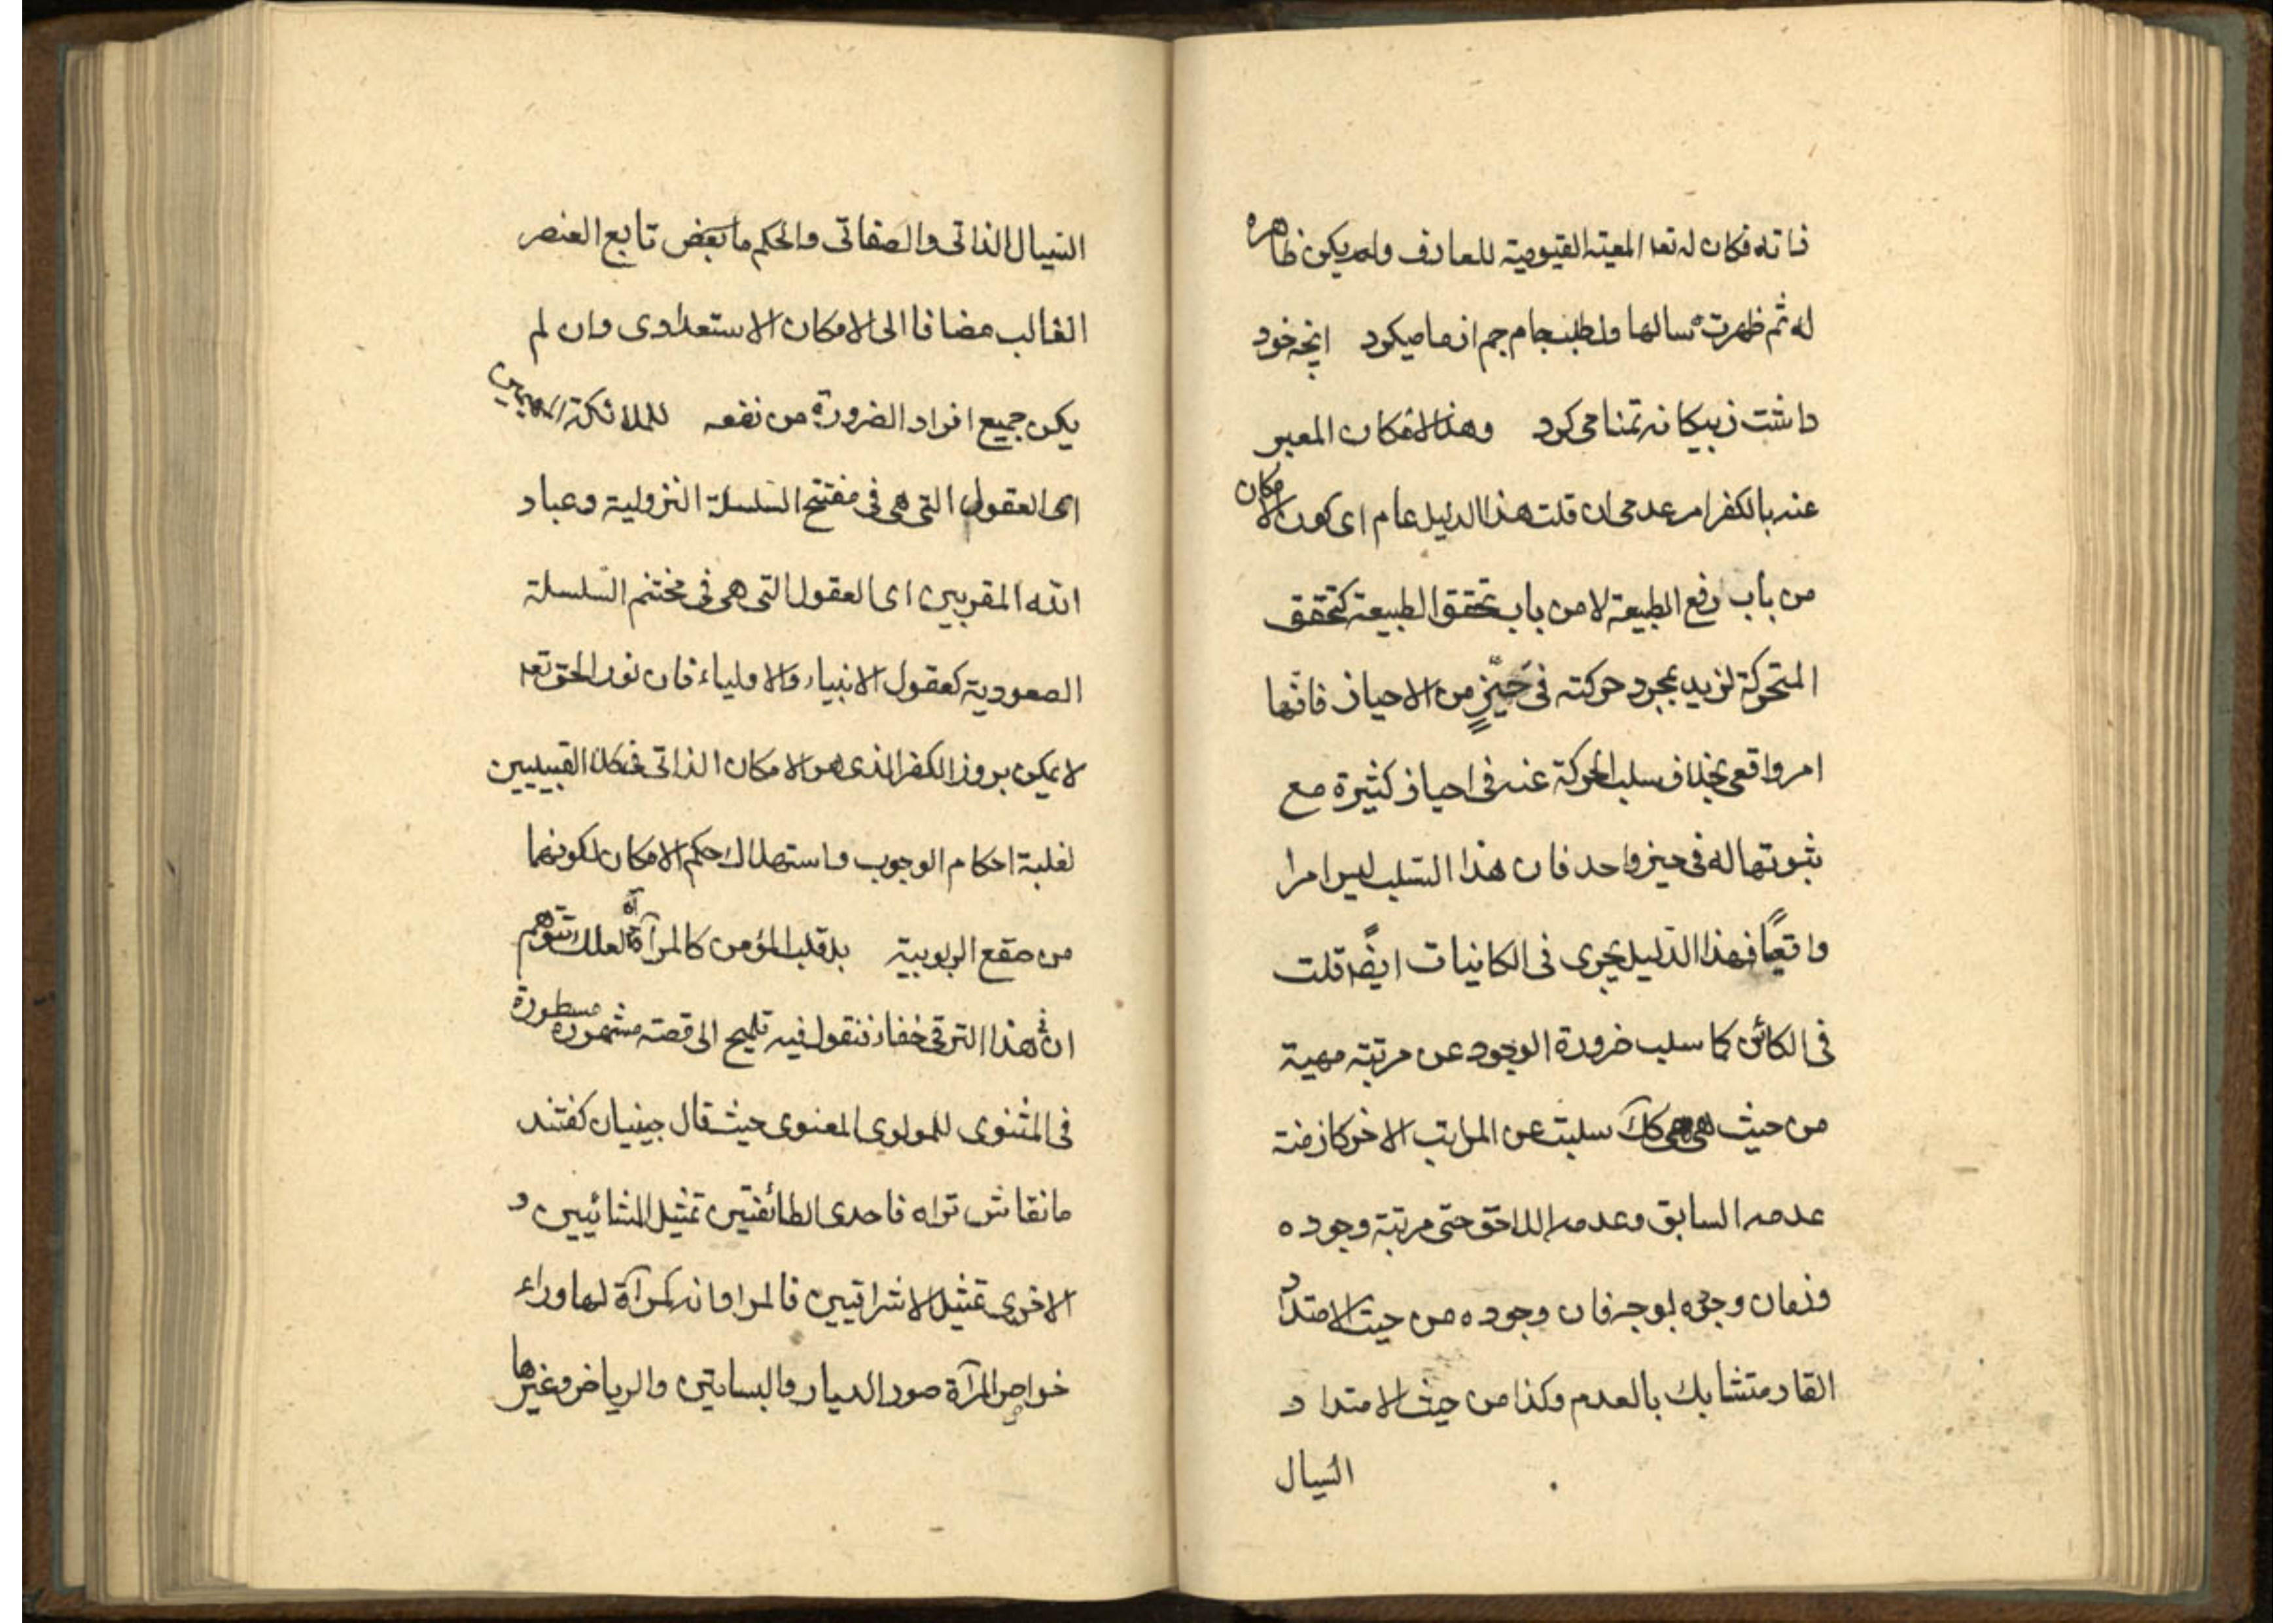 ذاته فكان له تعا المعية القيومية للعارف ولم يكن ظاهره
له ثم ظهرت سالها ولطلب جام جم از ما ميكرد انچه خود
داشت زبيكانه تمنا مى كرد وهذا الامكان المعبر
عنه بالكفر امر عدمى ان قلت هذا الدليل عام اى كون الامكان
من باب رفع الطبيعة لا من باب تحقق الطبيعة كتحقق
المتحركة لزيد بمجرد حركته فى حَيّزٍ من الاحياز فانّها
امر واقعى بخلاف سلب الحركة عنه فى احياز كثيرة مع
ثبوتها له فى حيز واحد فان هذا السّلب ليس امرا
واقعيًا فهذا الدّليل يجرى فى الكانيات ايضًا قلت
فى الكائن كما سلب ضرورة الوجود عن مرتبة مهية
من حيث هى هى كك سلبت عن المراتب الاخر كازمنة
عدمه السابق وعدمه اللاحق حتى مرتبة وجوده
وزمان وجوده بوجه فان وجوده من حيث الامتداد
القار متشابك بالعدم وكذا من حيث الامتداد
السّيال
السّيال الذاتى والصفاتى والحكم ما بعض تابع العنصر
الغالب مضافا الى الامكان الاستعدادى وان لم
يكن جميع افراد الضرورة من نفعه للملائكة المهيمين
اى العقول التى هى فى مفتتح السّلسلة النزولية وعباد
الله المقربين اى العقول التى هى فى مختتم السّلسلة
الصعودية كعقول الانبياء والاولياء فان نور الحق تعا
لا يمكن بروز الكفر الذى هو الامكان الذاتى فى كلا القبيلين
لغلبة احكام الوجوب واستهلاك حكم الامكان لكونهما
من صقع الربوبية بل قلب المؤمن كالمرآة آه لعلك تتوهم
ان فى هذا الترقى خفاء فنقول فيه تلميح الى قصة مشهورة مسطورة
فى المثنوى للمولوى المعنوى حيث قال چينيان كفتند
ما نقاش تراه فاحدى الطائفتين تمثيل المشائيين و
الاخرى تمثيل الاشراقيين فالمراد انه كمرآة لها وراء
خواص المرآة صور الديار والبساتين والرياض وغيرها